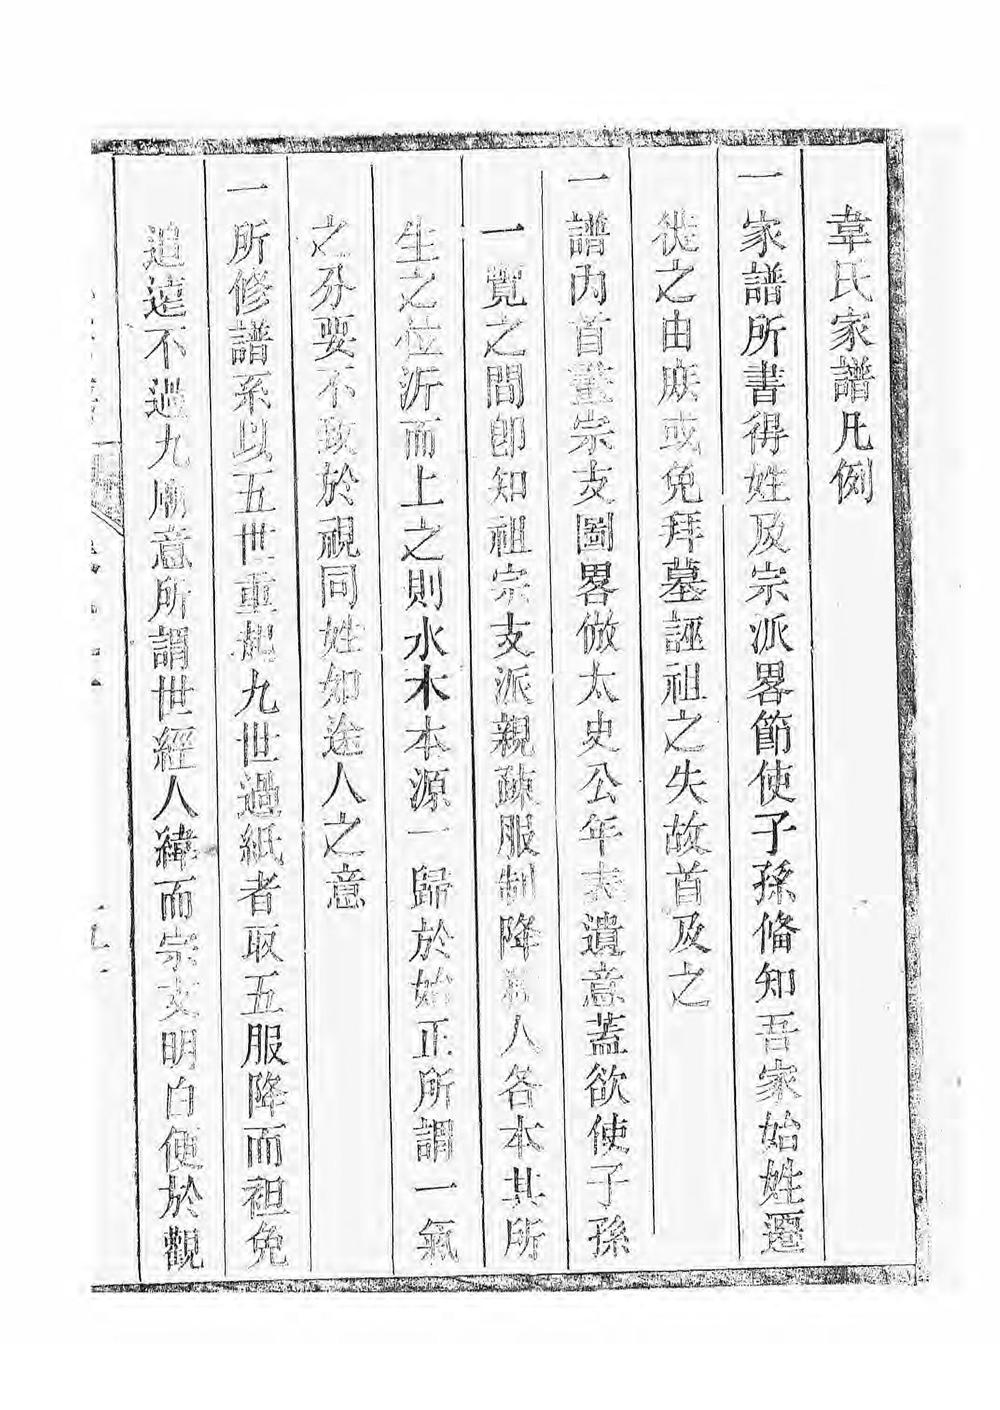 韋氏家譜凡例
一家譜所書得姓及宗派畧節使子孫俻知吾家始姓遷
徙之由庶或免拜墓誣祖之失故首及之
一譜內首畫宗支圖畧倣太史公年表遺意蓋欲使子孫
一覽之間卽知祖宗支派親疎服制降殺人各本其所
生之位泝而上之則水木本源一歸於始正所謂一氣
之分要不致於視同姓如途人之意
一所修譜系以五世重起九世過紙者取五服降而袒免
追遠不過九廟意所謂世經人緯而宗支明白便於觀